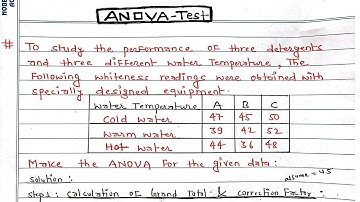 ANOVA-Test
# To study the performance of three detergents
and three different water Temperature, The
Following whiteness readings were obtained with
specially designed equipment.
Water Temperature A B C
Cold water 47 45 50
Warm water 39 42 52
Hot water 44 36 48
Make the ANOVA For the given data:
Solution: assume = 45
step 1: calculation of Grand Total & correction Factor: